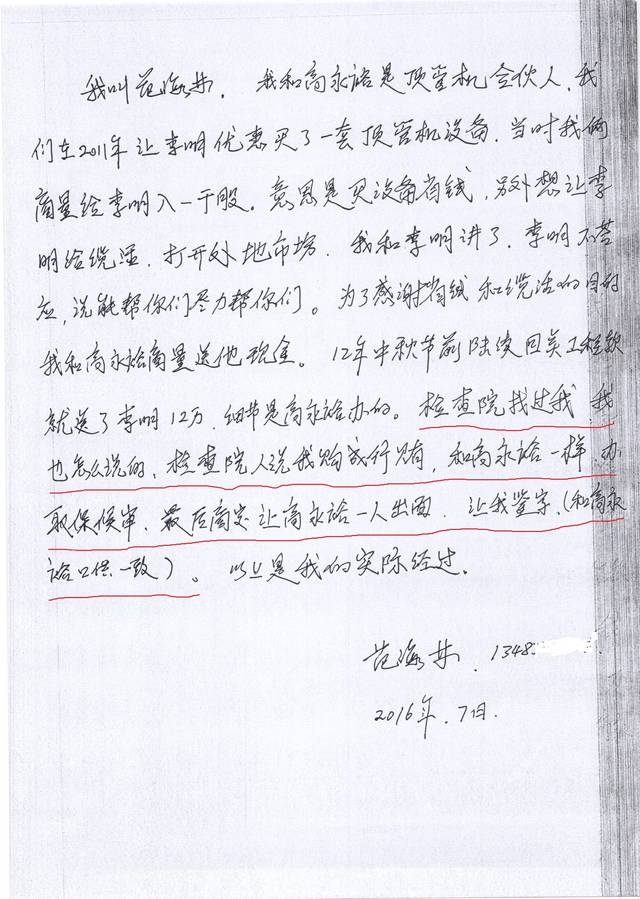 我叫范海井。我和高永裕是顶管机合伙人,我
们在2011年让李明优惠买了一套顶管机设备,当时我俩
商量给李明入一干股。意思是买设备省钱,另外想让李
明给揽活,打开外地市场,我和李明讲了,李明不答
应,说能帮你们尽力帮你们。为了感谢省钱和揽活的目的
我和高永裕商量送他现金。12年中秋节前陆续回买工程款
就送了李明12万,细节是高永裕办的。检查院找过我,我
也怎么说的,检查院人说我购成行贿,和高永裕一样办
取保候审,最后商定让高永裕一人出面,让我签字,(和高永
裕口供一致)。以上是我的实际经过。
范海井,1348
2016年.7日.